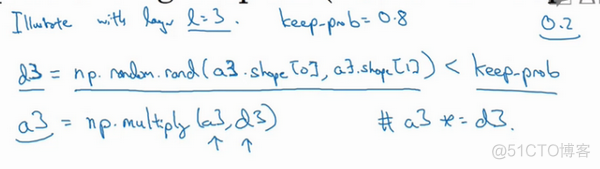 Illustrate with layer l=3. keep-prob=0.8 0.2
d3 = np.random.rand(a3.shape[0], a3.shape[1]) < keep-prob
a3 = np.multiply(a3, d3) # a3 *= d3.
@51CTO博客